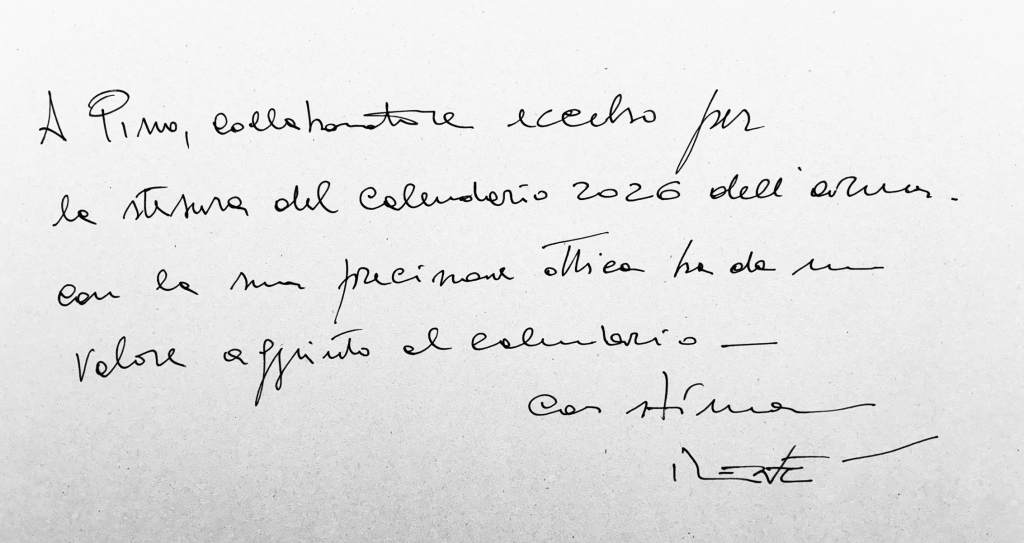 A Pino, collaboratore eccelso per
la stesura del calendario 2026 dell'arma.
con la sua precisione ottica ha da un
valore aggiunto al calendario —
con stima